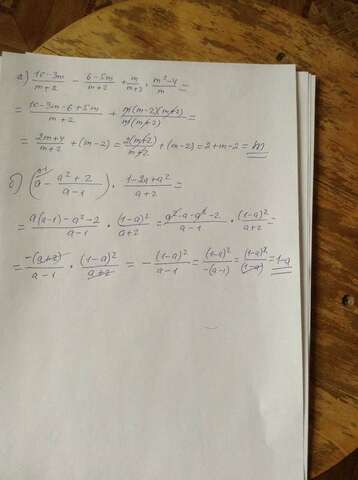 а) (10-3m)/(m+2) - (6-5m)/(m+2) + m/(m+2) · (m²-4)/m =
= (10-3m-6+5m)/(m+2) + m(m-2)(m+2)/m(m+2) =
= (2m+4)/(m+2) + (m-2) = 2(m+2)/(m+2) + (m-2) = 2+m-2 = m
б) (a - (a²+2)/(a-1)) · (1-2a+a²)/(a+2) =
= (a(a-1)-a²-2)/(a-1) · (1-a)²/(a+2) = (a²-a-a²-2)/(a-1) · (1-a)²/(a+2) =
= -(a+2)/(a-1) · (1-a)²/(a+2) = - (1-a)²/(a-1) = (1-a)²/-(a-1) = (1-a)²/(1-a) = 1-a